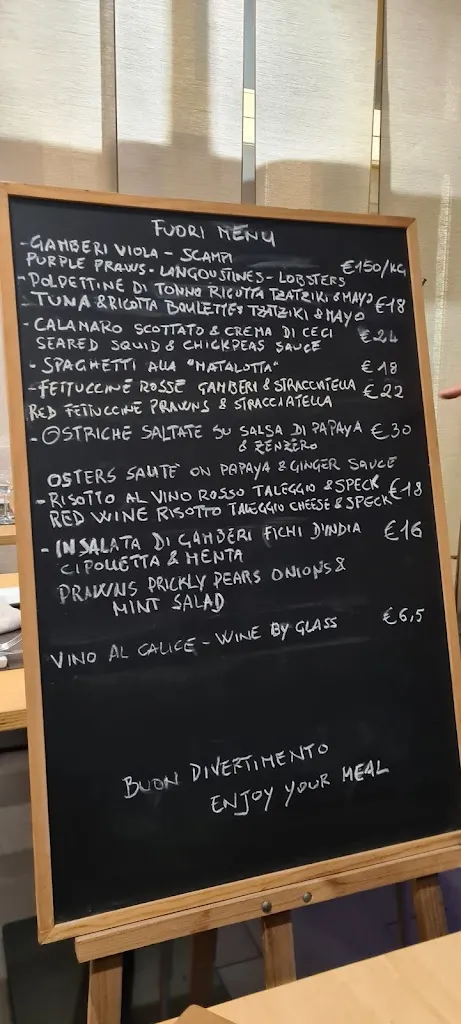 FUORI MENU
- GAMBERI VIOLA - SCAMPI
PURPLE PRAWS - LANGOUSTINES - LOBSTERS €150/KG
- POLPETTINE DI TONNO RICOTTA TZATZIKI & MAYO
TUNA & RICOTTA BOULETTES TZATZIKI & MAYO €18
- CALAMARO SCOTTATO & CREMA DI CECI €24
SEARED SQUID & CHICKPEAS SAUCE
- SPAGHETTI ALLA "MATALOTTA" €18
- FETTUCCINE ROSSE GAMBERI & STRACCIATELLA €22
RED FETTUCCINE PRAWNS & STRACCIATELLA
- OSTRICHE SALTATE SU SALSA DI PAPAYA €30
& ZENZERO
OSTERS SAUTE ON PAPAYA & GINGER SAUCE
- RISOTTO AL VINO ROSSO TALEGGIO & SPECK €18
RED WINE RISOTTO TALEGGIO CHEESE & SPECK
- INSALATA DI GAMBERI FICHI D'INDIA €16
CIPOLLETTA & MENTA
PRAWNS PRICKLY PEARS ONIONS &
MINT SALAD
VINO AL CALICE - WINE BY GLASS €6,5
BUON DIVERTIMENTO
ENJOY YOUR MEAL